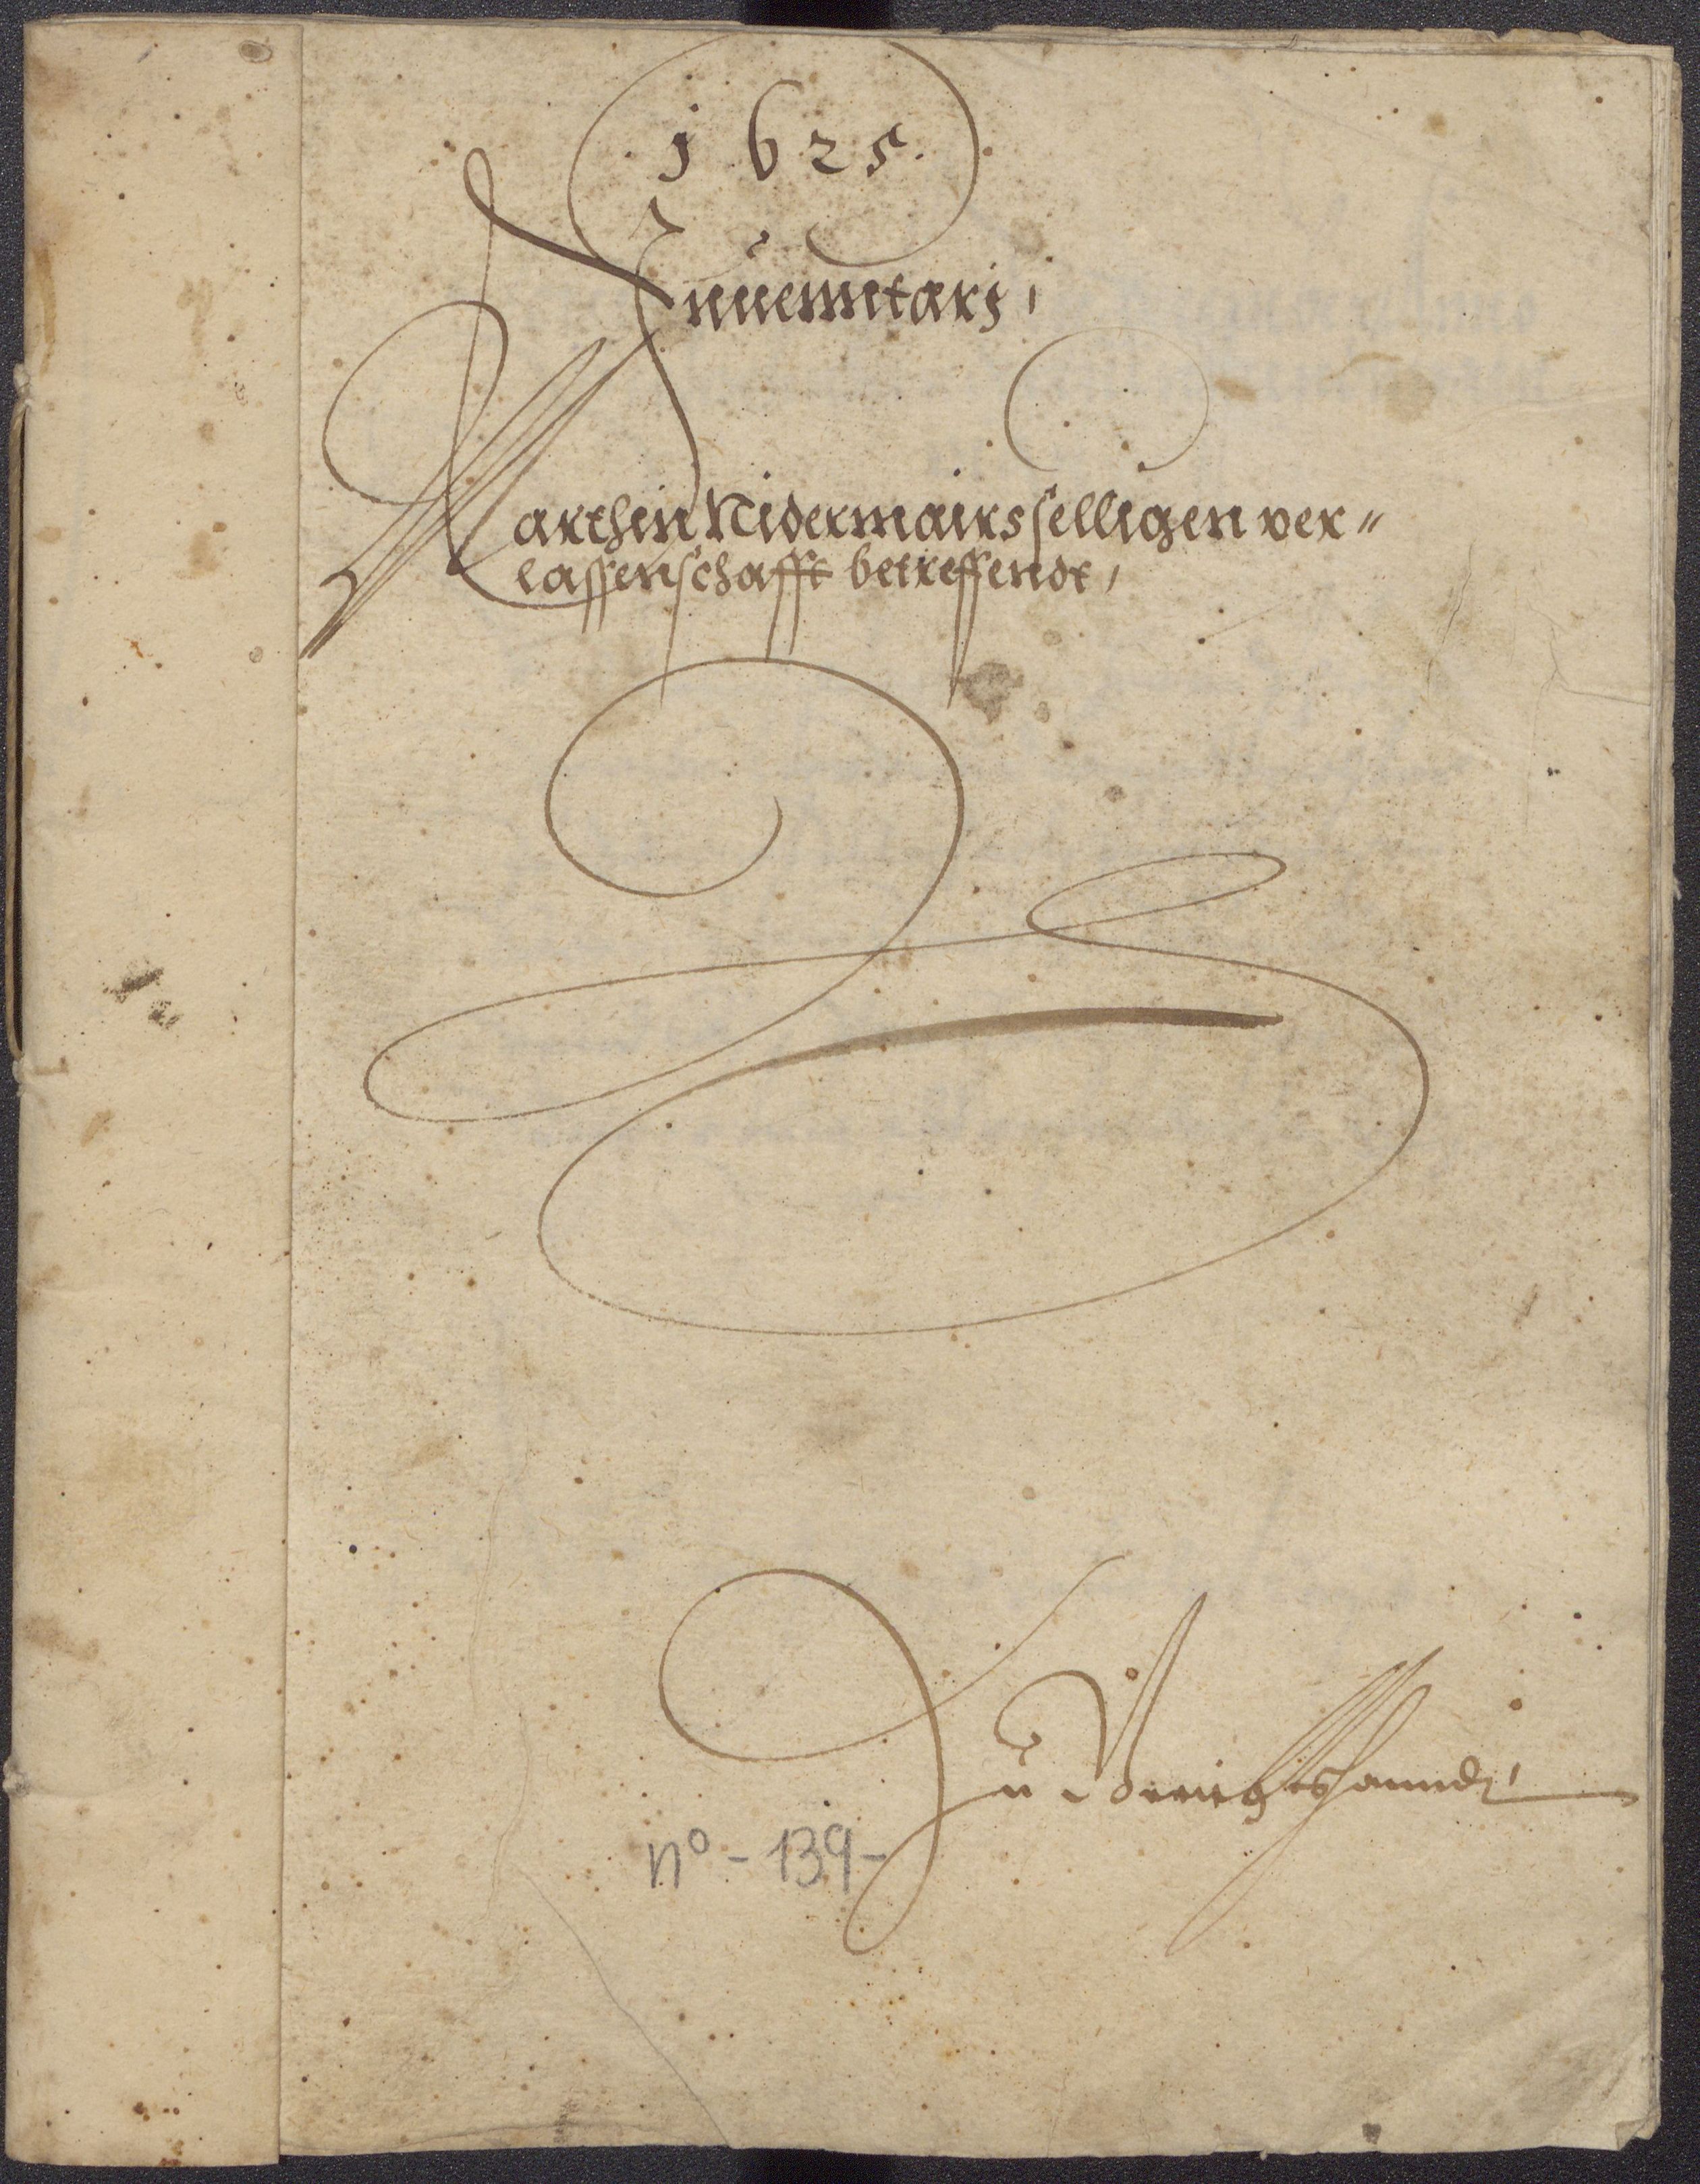 .1625.
Inuenntarj,
Marthin Nidermairs selligen ver-
lassenschafft betreffendt,
Zu Gerichtshannd,
nº - 139 -